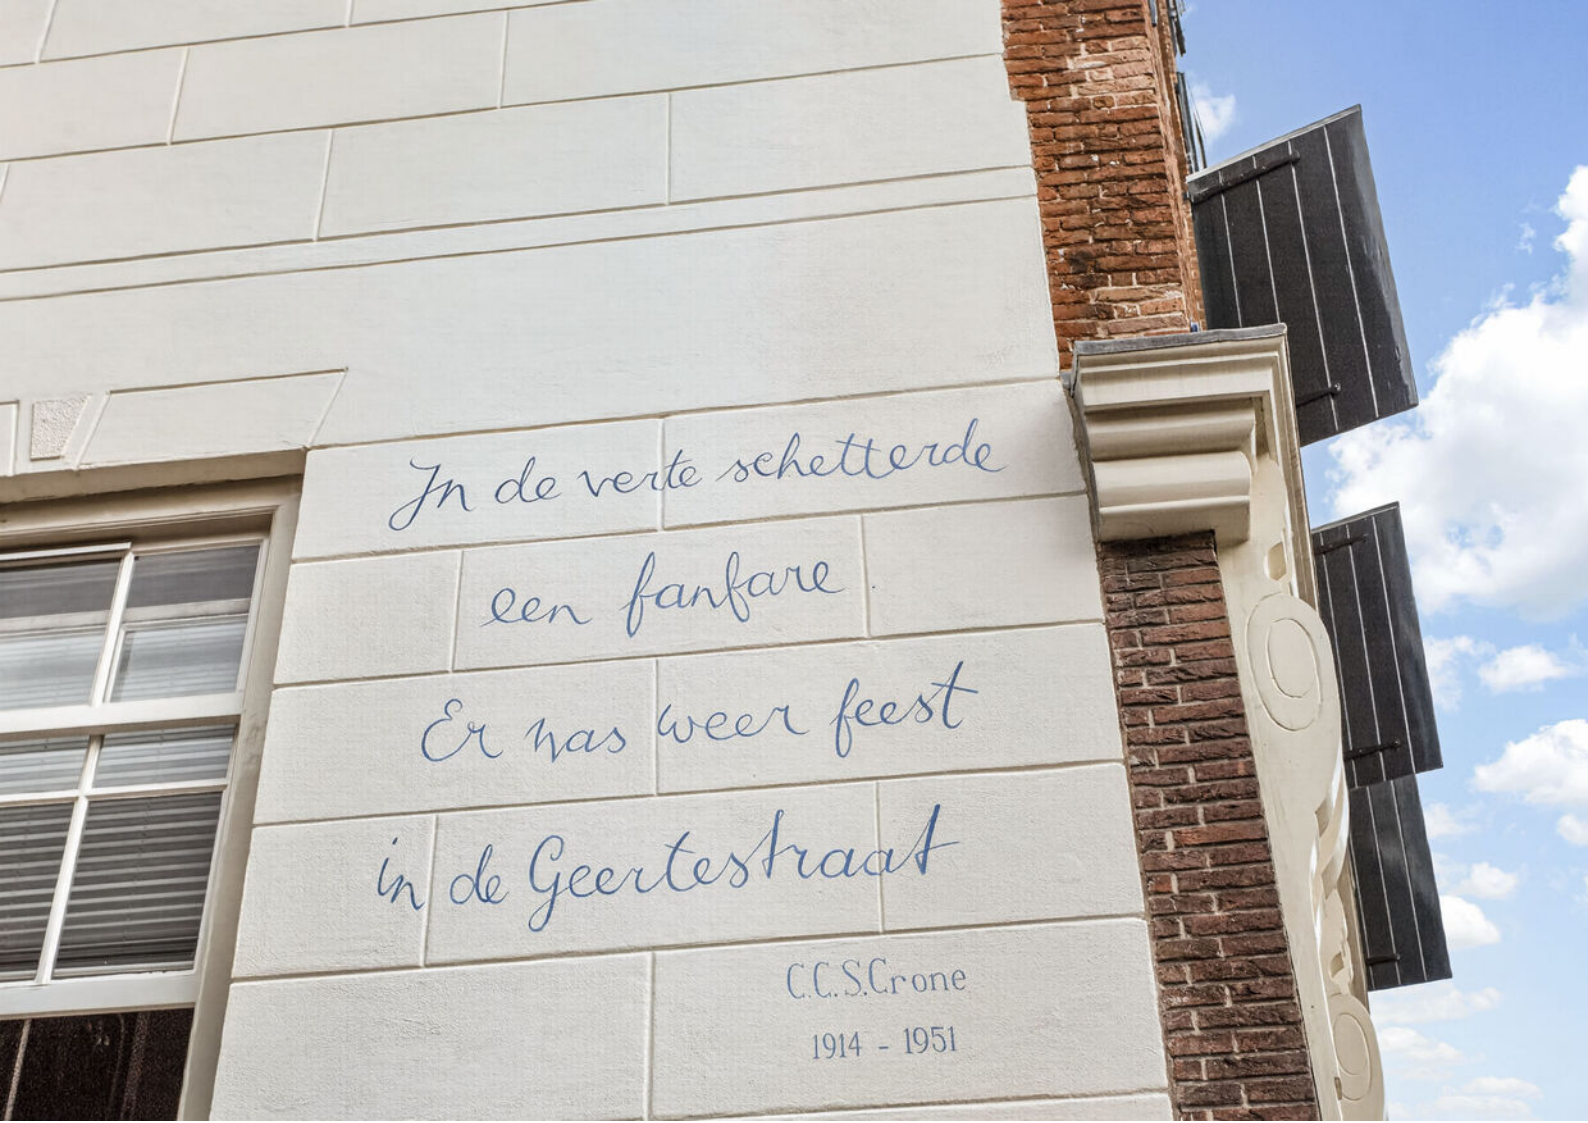 In de verte schetterde
een fanfare.
Er was weer feest
in de Geertestraat
C.C.S.Crone
1914 - 1951